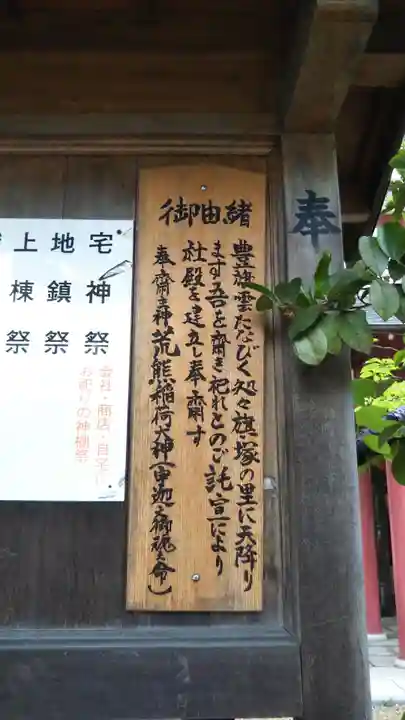 御由緒
豊旗雲たなびく処々旗塚の里に天降り
ます吾を齋き祀れとのご託宣により
社殿を建立し奉齋す
奉齋主神荒熊稲荷大神
奉
宅神祭
地鎮祭
上棟祭
会社・商店・自宅
お祀りの神棚祭